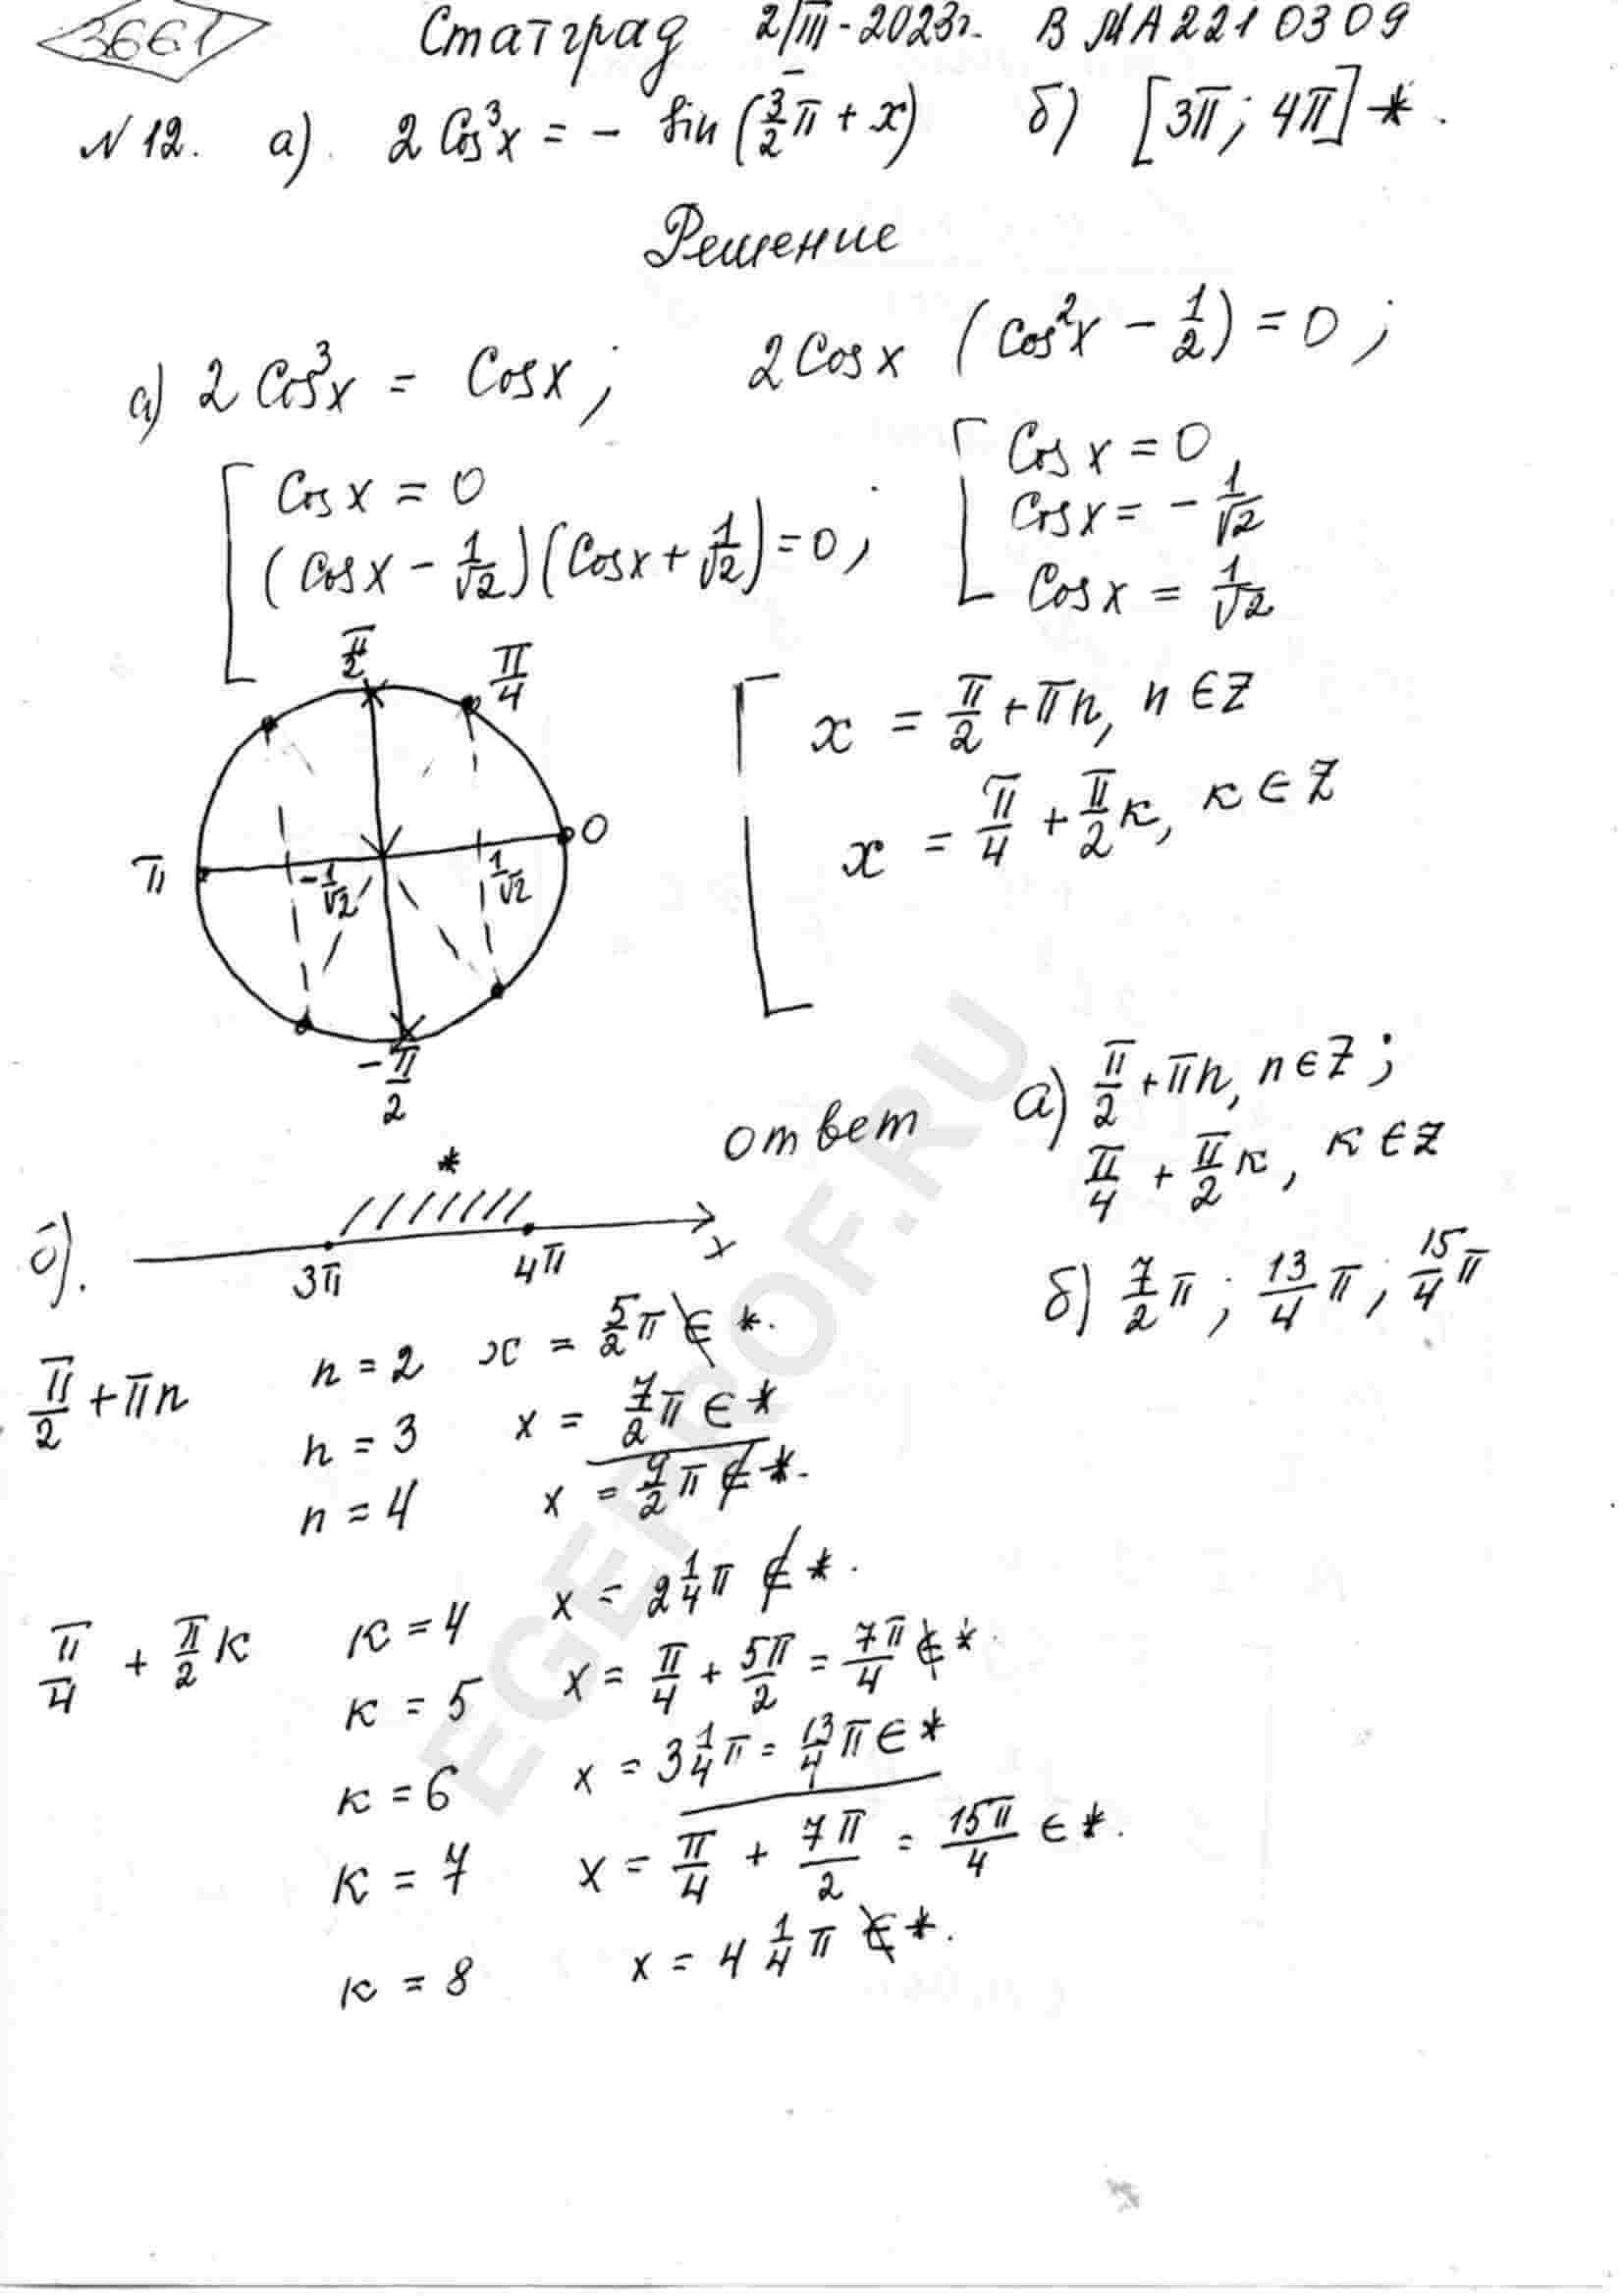 3661
Статград 2/III-2023г. В МА2210309
N 12. а). 2 Cos³x = - sin (3/2 π + x) б) [3π; 4π] *.
Решение
а) 2 Cos³x = Cos x; 2 Cos x (Cos²x - 1/2) = 0;
[ Cos x = 0
(Cos x - 1/√2)(Cos x + 1/√2) = 0;
[ Cos x = 0
Cos x = - 1/√2
Cos x = 1/√2
π/2 π/4
π 0
-1/√2 1/√2
-π/2
[ x = π/2 + πn, n ∈ Z
x = π/4 + π/2 к, к ∈ Z
ответ а) π/2 + πn, n ∈ Z;
π/4 + π/2 к, к ∈ Z
б) 7/2 π; 13/4 π; 15/4 π
б). *
3π 4π x
π/2 + πn n = 2 x = 5/2 π ∉ *.
n = 3 x = 7/2 π ∈ *
n = 4 x = 9/2 π ∉ *.
π/4 + π/2 к к = 4 x = 2 1/4 π ∉ *.
к = 5 x = π/4 + 5π/2 = 7π/4 ∉ *.
к = 6 x = 3 1/4 π = 13/4 π ∈ *
к = 7 x = π/4 + 7π/2 = 15π/4 ∈ *.
к = 8 x = 4 1/4 π ∉ *.
EGEPROF.RU